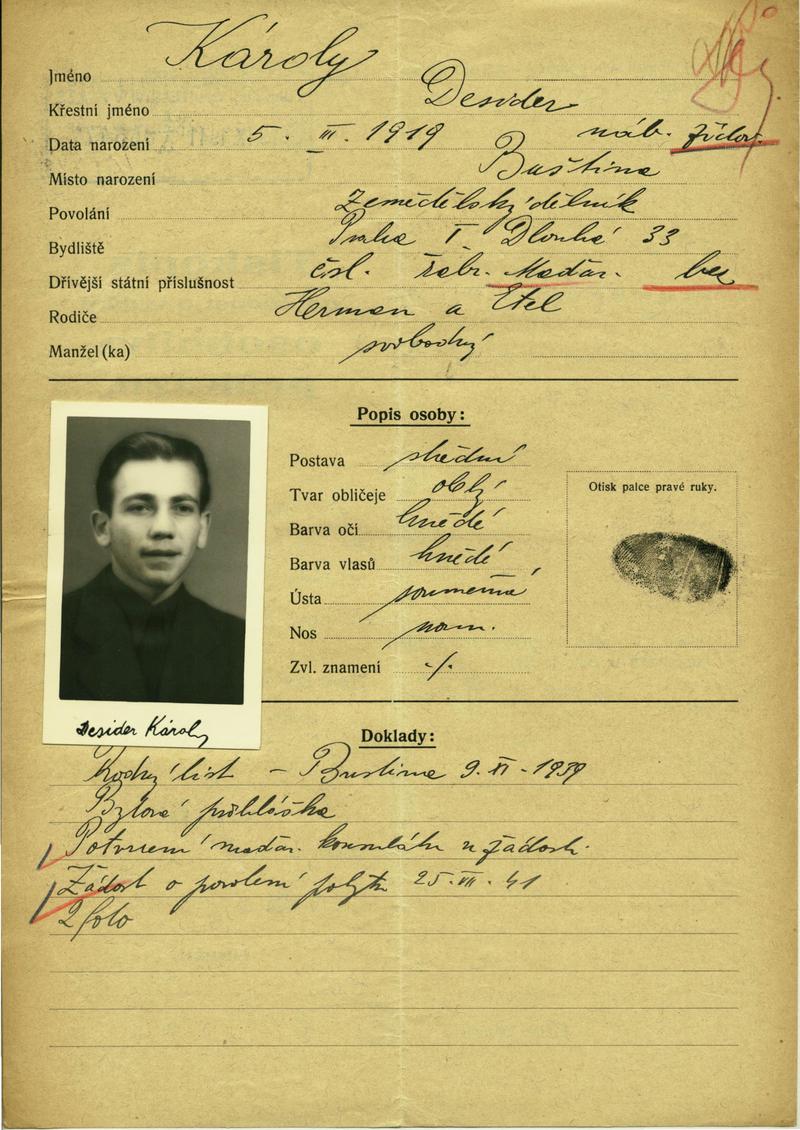 Jméno Károly
Křestní jméno Desider
Data narození 5. III. 1919 náb. židov.
Místo narození Buština
Povolání Zemědělský dělník
Bydliště Praha I Dlouhá 33
Dřívější státní příslušnost čsl. Maďar. bez
Rodiče Herman a Etel
Manžel (ka) svobodný
Popis osoby:
Postava střední
Tvar obličeje oblý
Barva očí hnědé
Barva vlasů hnědé
Ústa souměrná
Nos norm.
Zvl. znamení ./.
Otisk palce pravé ruky.
Desider Károly
Doklady:
Rodný list - Bustina 9. XI - 1939
Bytová přihláška
Potvrzení maďar. konsulátu o žádosti.
Žádost o povolení pobytu 25. VII. 41
2 foto